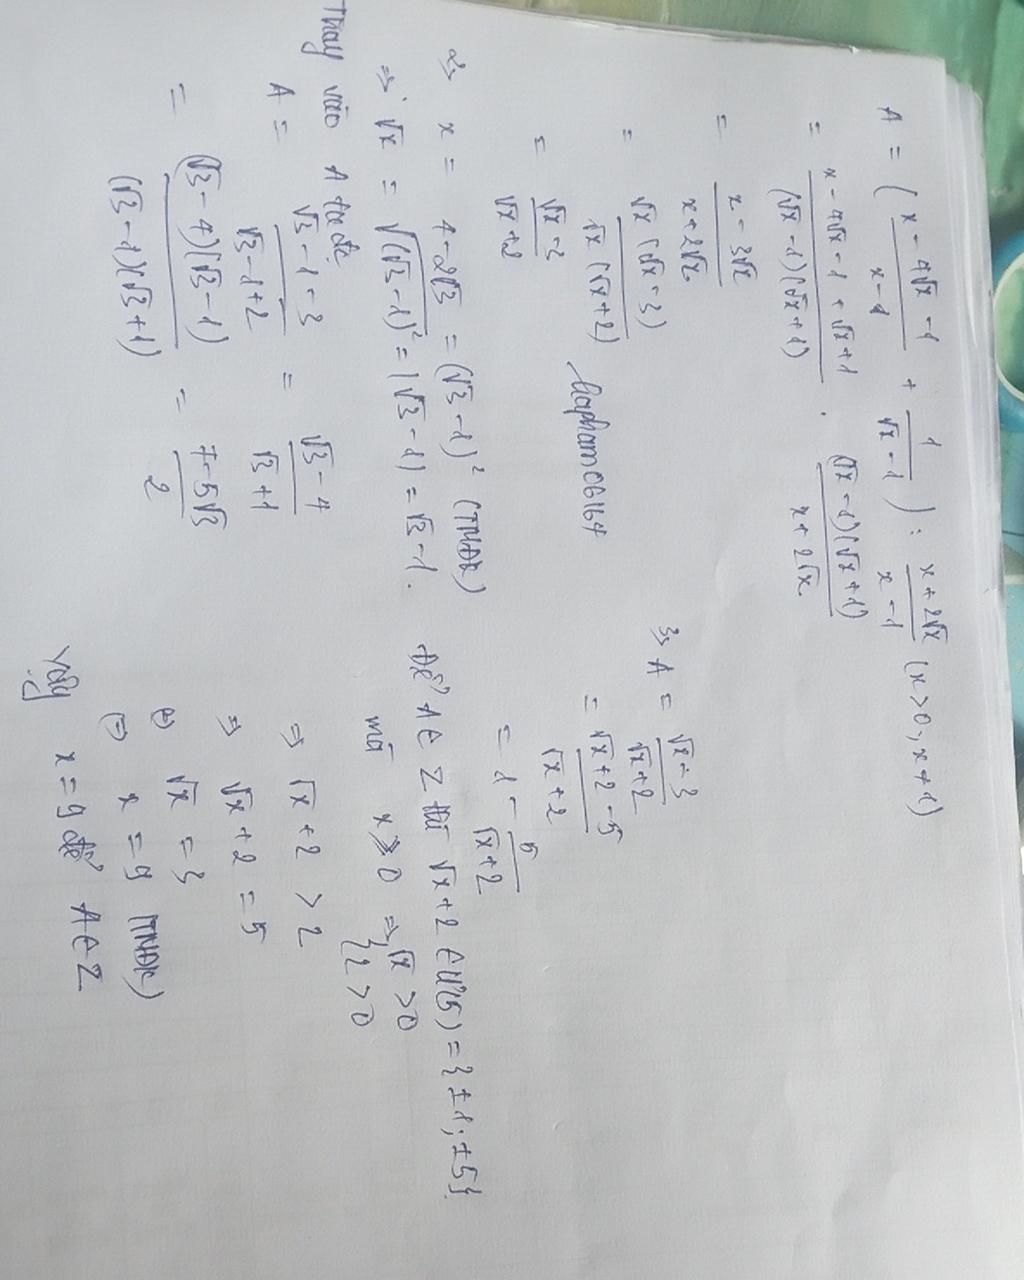 A = ( x - 4√x - 1 / x - 1 + 1 / √x - 1 ) : x + 2√x / x - 1 (x > 0, x ≠ 1)
= x - 4√x - 1 + √x + 1 / (√x - 1)(√x + 1) . (√x - 1)(√x + 1) / x + 2√x
= x - 3√x / x + 2√x
= √x (√x - 3) / √x (√x + 2)
= √x - 3 / √x + 2
hapham06164
2, x = 4 - 2√3 = (√3 - 1)² (TMĐK)
=> √x = √(√3 - 1)² = |√3 - 1| = √3 - 1.
Thay vào A ta đc
A = √3 - 1 - 3 / √3 - 1 + 2 = √3 - 4 / √3 + 1
= (√3 - 4)(√3 - 1) / (√3 - 1)(√3 + 1) = 7 - 5√3 / 2
3, A = √x - 3 / √x + 2
= √x + 2 - 5 / √x + 2
= 1 - 5 / √x + 2
Để A ∈ Z thì √x + 2 ∈ Ư(5) = {±1; ±5}
mà x > 0 => { √x > 0
2 > 0
=> √x + 2 > 2
=> √x + 2 = 5
(=) √x = 3
(=) x = 9 (TMĐK)
Vậy x = 9 để A ∈ Z